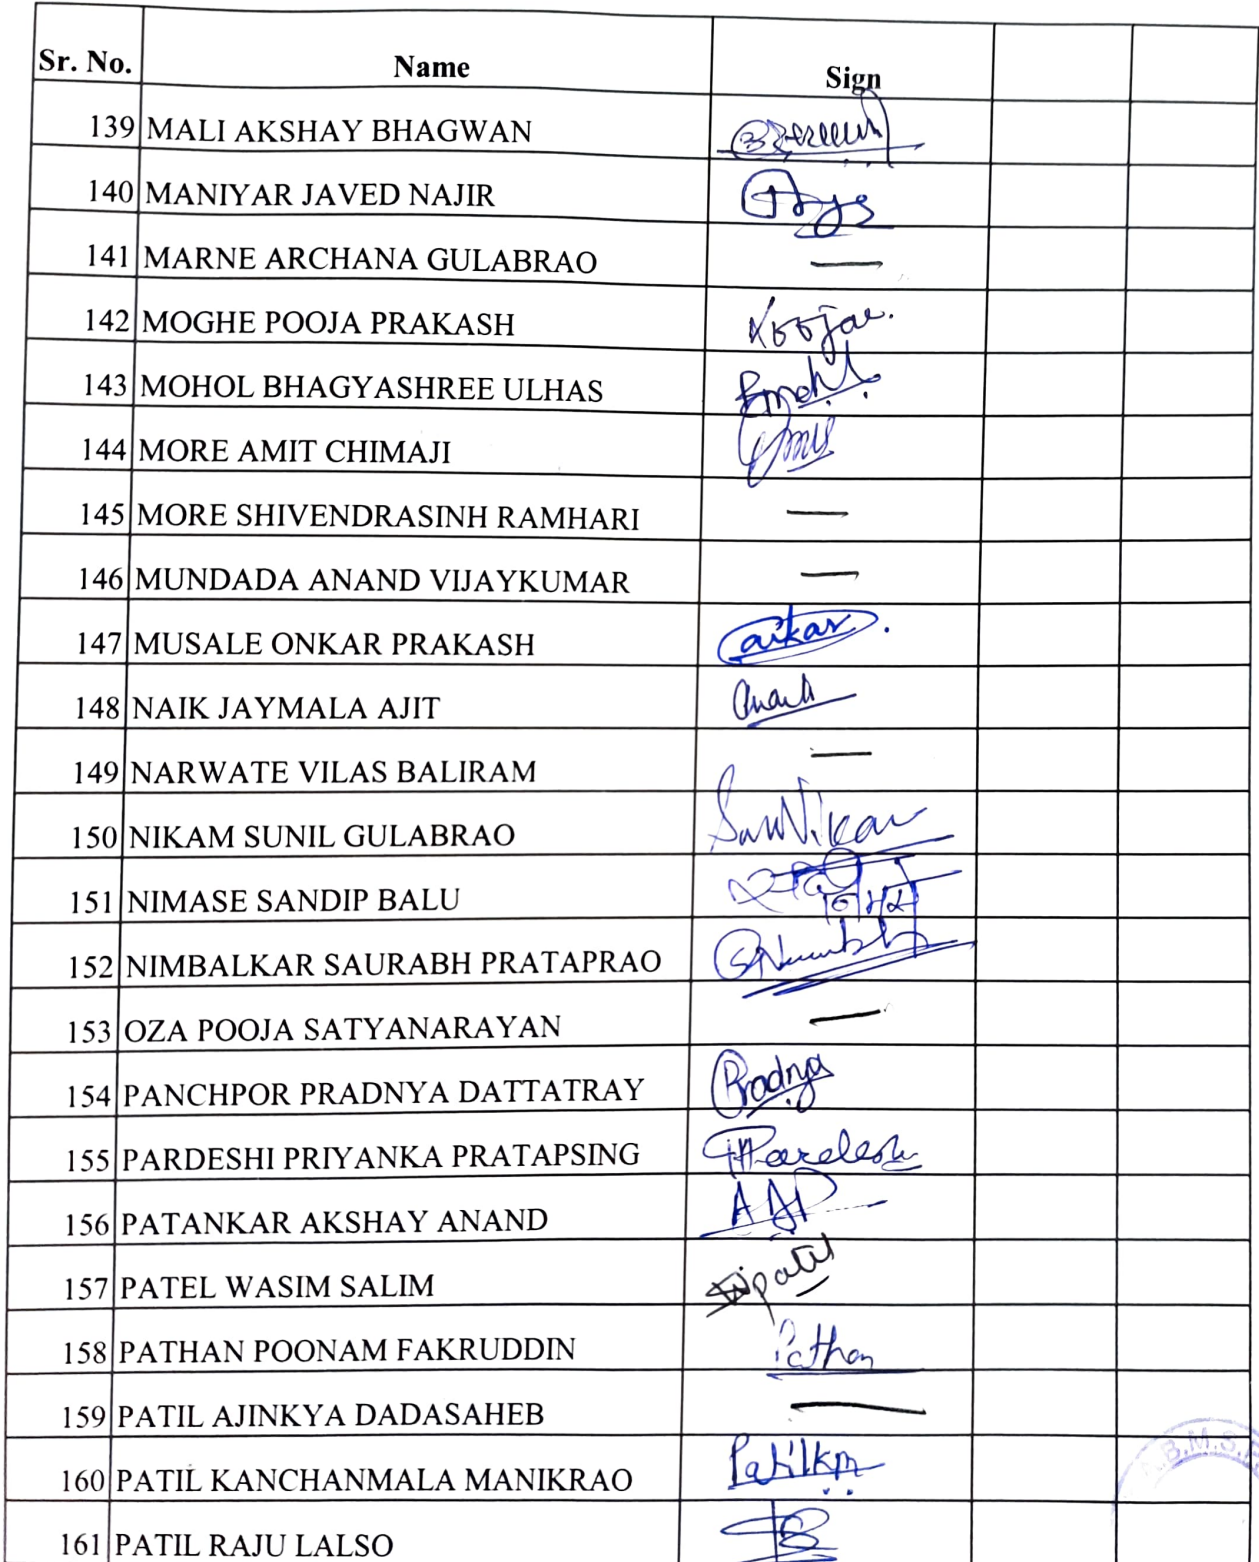 Sr. No. Name Sign
139 MALI AKSHAY BHAGWAN
140 MANIYAR JAVED NAJIR
141 MARNE ARCHANA GULABRAO —
142 MOGHE POOJA PRAKASH
143 MOHOL BHAGYASHREE ULHAS
144 MORE AMIT CHIMAJI
145 MORE SHIVENDRASINH RAMHARI —
146 MUNDADA ANAND VIJAYKUMAR —
147 MUSALE ONKAR PRAKASH
148 NAIK JAYMALA AJIT
149 NARWATE VILAS BALIRAM —
150 NIKAM SUNIL GULABRAO
151 NIMASE SANDIP BALU
152 NIMBALKAR SAURABH PRATAPRAO
153 OZA POOJA SATYANARAYAN —
154 PANCHPOR PRADNYA DATTATRAY Pradnya
155 PARDESHI PRIYANKA PRATAPSING
156 PATANKAR AKSHAY ANAND
157 PATEL WASIM SALIM
158 PATHAN POONAM FAKRUDDIN Pathan
159 PATIL AJINKYA DADASAHEB —
160 PATIL KANCHANMALA MANIKRAO Patilkm
161 PATIL RAJU LALSO